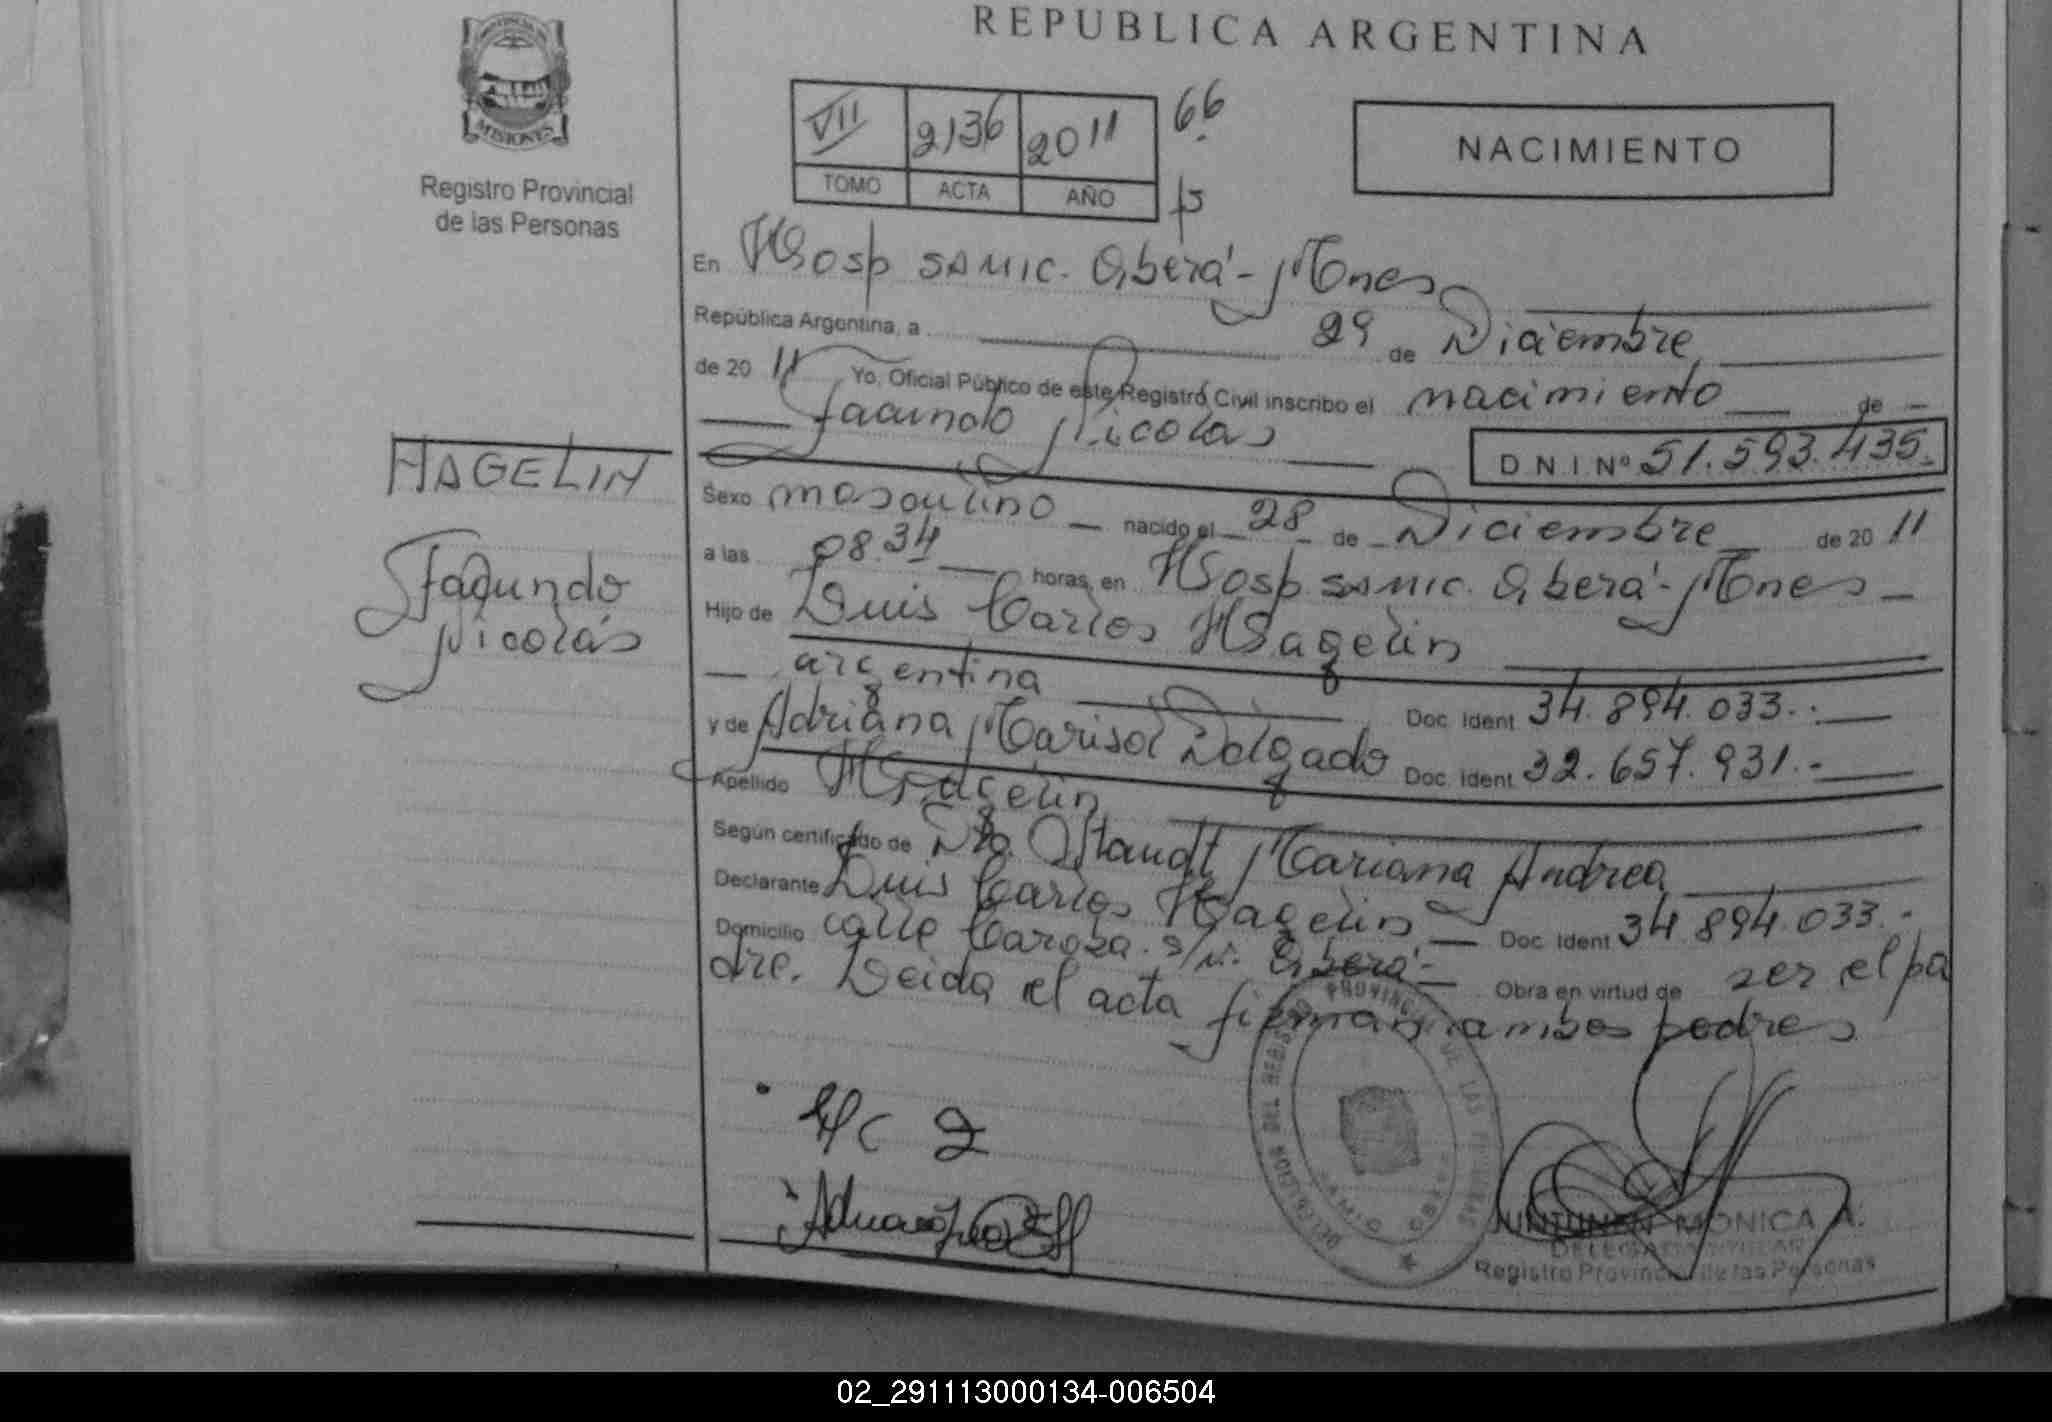 REPUBLICA ARGENTINA
MISIONES
Registro Provincial
de las Personas
VII 2136 2011 66
TOMO ACTA AÑO fs
NACIMIENTO
En Hosp SAMIC. Oberá - Mnes
República Argentina, a 29 de Diciembre
de 20 11 Yo, Oficial Público de este Registro Civil inscribo el nacimiento de
Facundo Nicolás D N I Nº 51.593.435.
HAGELIN
Facundo
Nicolás
Sexo masculino nacido el 28 de Diciembre de 20 11
a las 08.34 horas, en Hosp SAMIC. Oberá - Mnes
Hijo de Luis Carlos Hagelin
argentina Doc. Ident 34.894.033.-
y de Adriana Marisol Delgado Doc. Ident 32.657.931.-
Apellido Hagelin
Según certificado de Dra. Staudt Mariana Andrea
Declarante Luis Carlos Hagelin Doc. Ident 34.894.033.-
Domicilio calle s/n. Oberá - Obra en virtud de ser el pa
dre. Leida el acta firman ambos padres
PROVINCIAL DE LAS PERSONAS
JUNTUNEN MONICA A.
DELEGADA TITULAR
Registro Provincial de las Personas
02_291113000134-006504